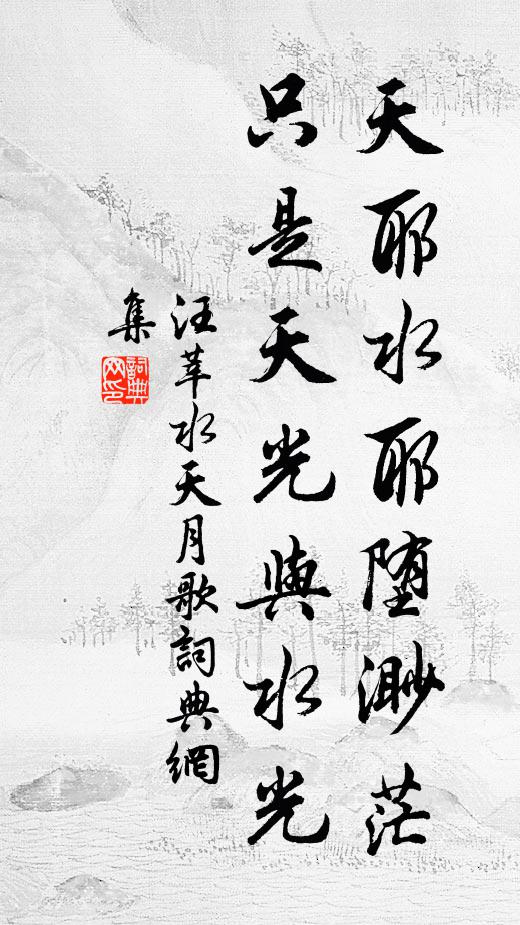 天耶水耶堕渺茫
只是天光與水光
汪莘水天月歌詞典網
集
詞典网印